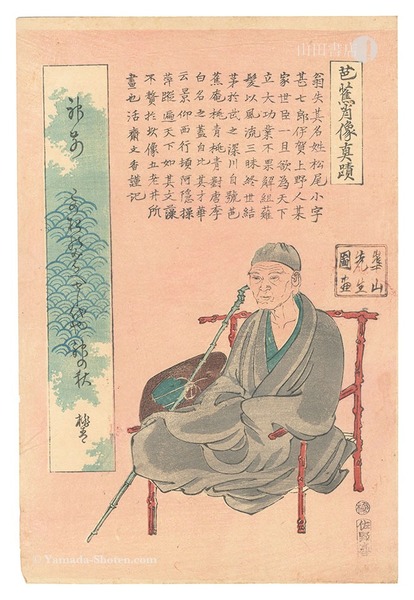 山田書店
芭蕉肖像真蹟
翁失其名姓松尾小字
甚七郎伊賀上野人某
家世臣一旦欲為天下
立大功業不果解組薙
髮以風流三昧終世結
茅於武之深川自號芭
蕉庵桃青桃青對唐李
白名之蓋自比其才華
云景仰西行頓阿隠操
萍蹤遍天下如其文謙
不贅於坎像五老井所
畫也活齋文香謹記
崋山
先生
圖畫
佐野喜
©Yamada-Shoten.com